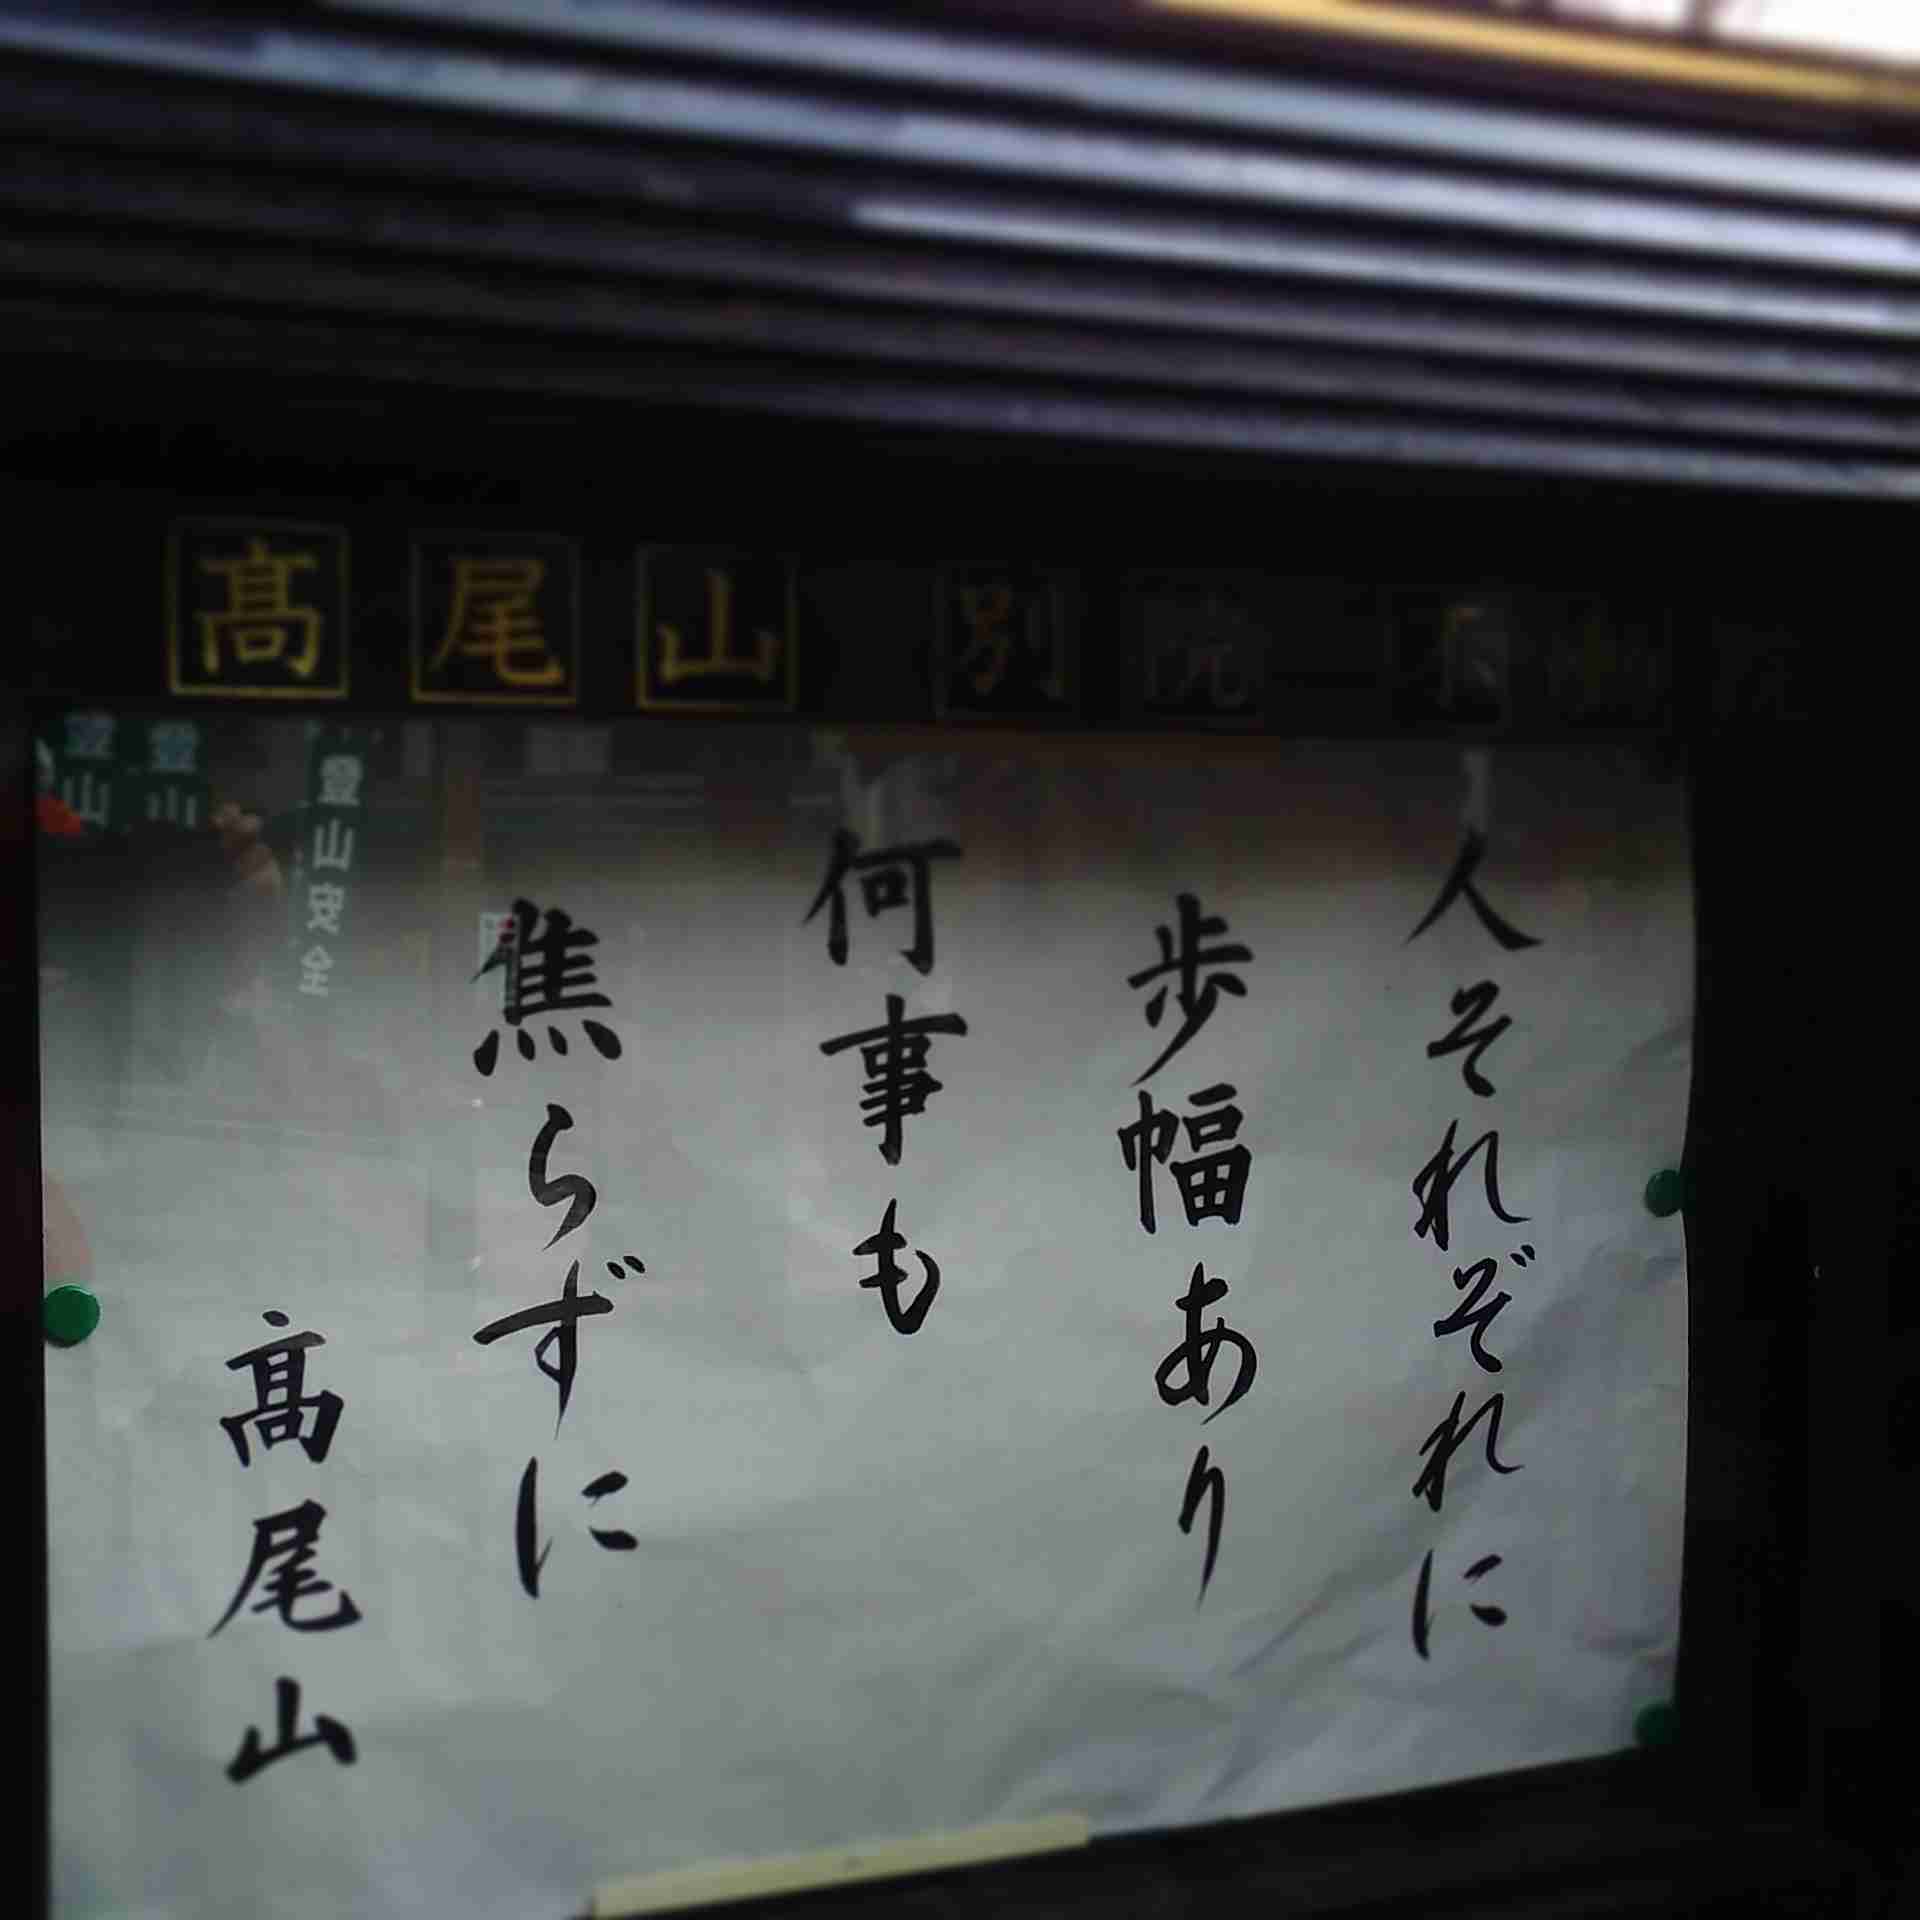 髙尾山 別院
人それぞれに
歩幅あり
何事も
焦らずに
髙尾山
登山安全